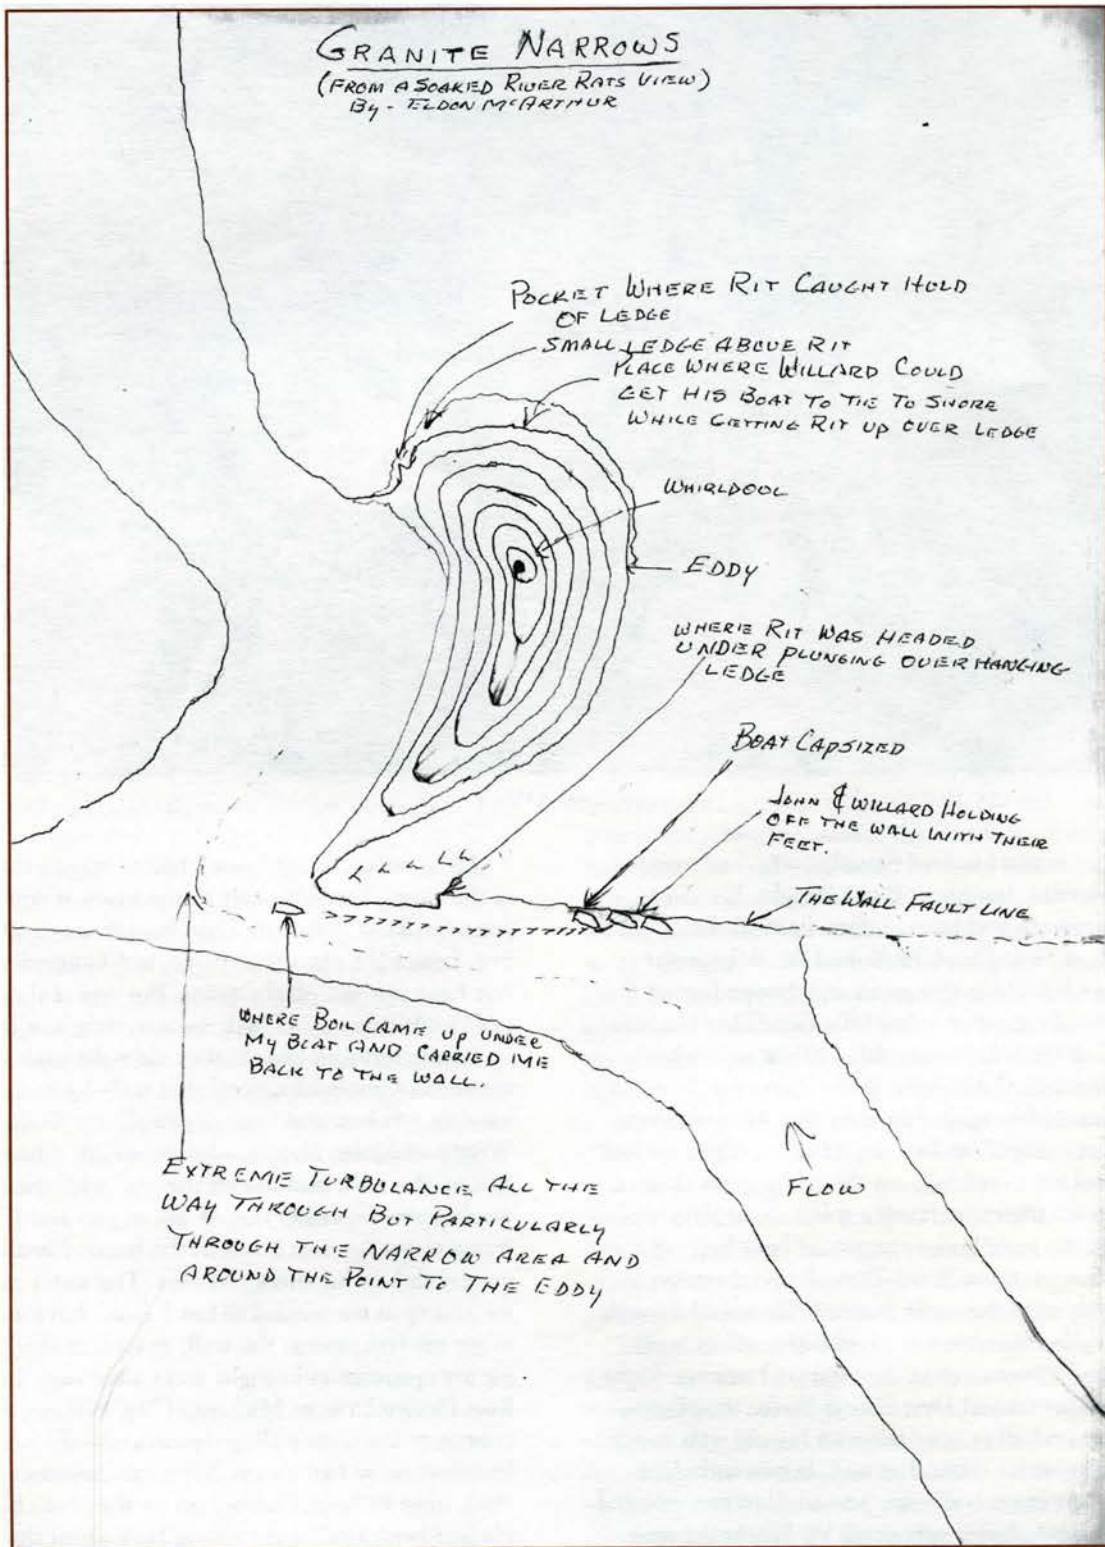 GRANITE NARROWS
(FROM A SOAKED RIVER RATS VIEW)
By - ELDON McARTHUR
POCKET WHERE RIT CAUGHT HOLD
OF LEDGE
SMALL LEDGE ABOVE RIT
PLACE WHERE WILLARD COULD
GET HIS BOAT TO TIE TO SHORE
WHILE GETTING RIT UP OVER LEDGE
WHIRLPOOL
EDDY
WHERE RIT WAS HEADED
UNDER PLUNGING OVERHANGING
LEDGE
BOAT CAPSIZED
JOHN & WILLARD HOLDING
OFF THE WALL WITH THEIR
FEET.
THE WALL FAULT LINE
WHERE BOIL CAME UP UNDER
MY BOAT AND CARRIED ME
BACK TO THE WALL.
FLOW
EXTREME TURBULANCE ALL THE
WAY THROUGH BUT PARTICULARLY
THROUGH THE NARROW AREA AND
AROUND THE POINT TO THE EDDY